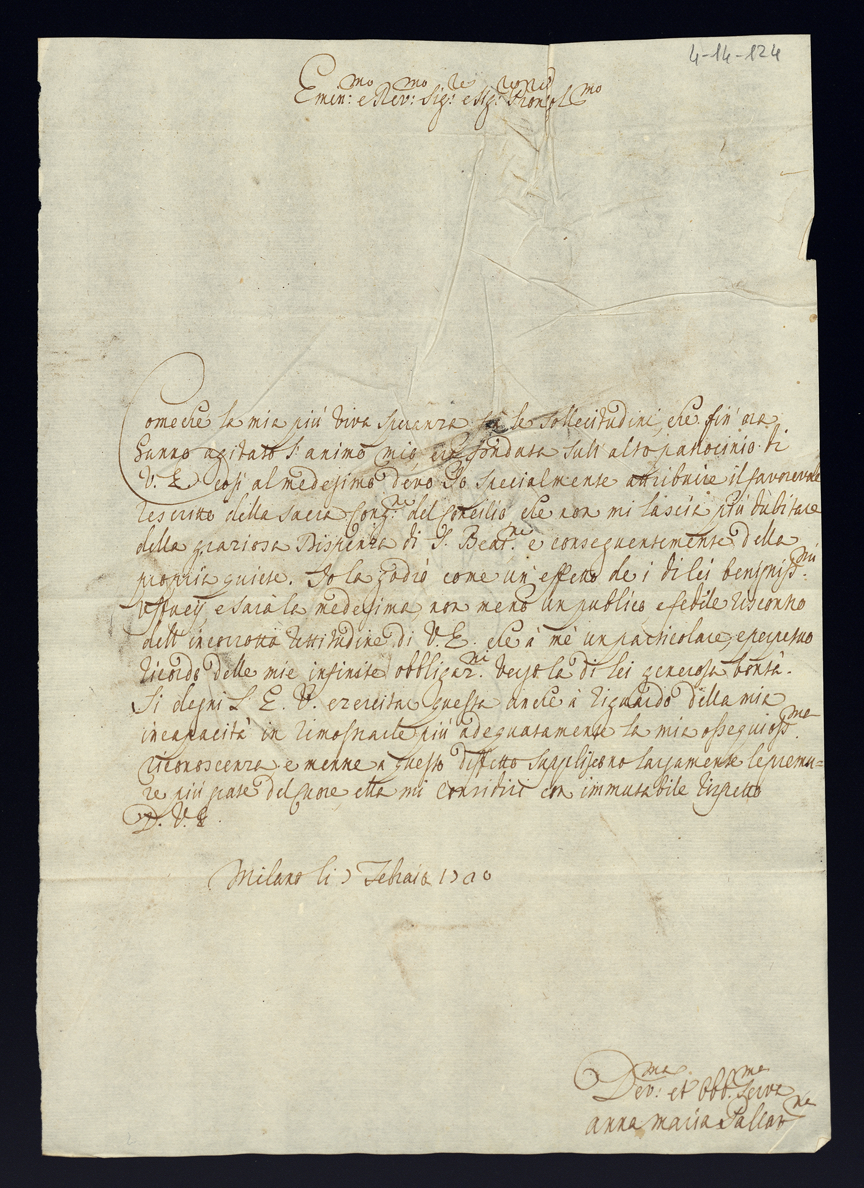 4-14-124
Emin:mo e Rev:mo Sig:re e Sig:re Pron Col:mo
Come che la mia più viva speranza frà le sollecitudini, che fin' ora
hanno agitato l'animo mio era fondata sull'alto patrocinio di
V. E. così al medesimo devo Io specialmente attribuire il favorevole
rescritto della Sacra Cong:ne del Consilio che non mi lascia più dubitare
della graziosa Dispenza di S. Beat:ne e conseguentemente della
propria quiete. Io la godrò come un' effetto de i di lei benigniss:mi
Uffitij, e sarà la medesima, non meno un publico e fedele riscontro
dell' incorrotta rettitudine di V. E. che à mè un particolare, e perpetuo
ricordo delle mie infinite obbligaz:ni verso la di lei generosa bontà.
Si degni l' E. V. exercitar questa anche à riguardo della mia
incapacità in dimostrarle più adeguatamente la mia ossequioss:ma
riconoscenza e mentre a questo diffetto suppliscono largamente le premu=
re più grate del Cuore, ella mi consideri con immutabile rispetto
D. V. E.
Milano li 7 Febraio
Dev:ma et Obb:ma Serva
anna maria Pallav:na